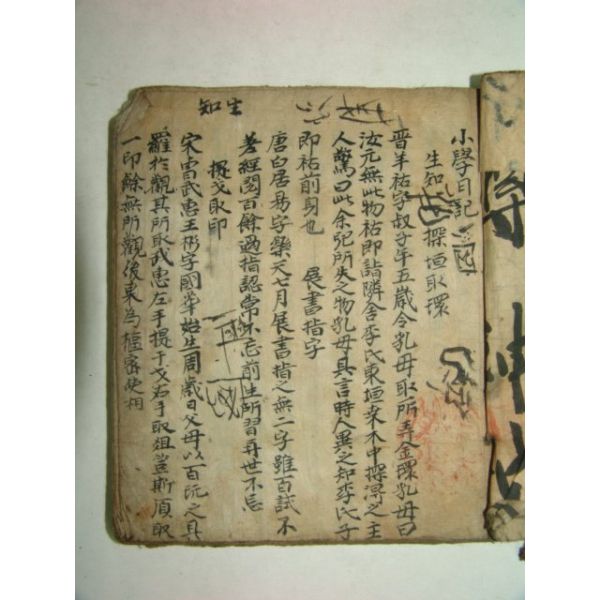 小學日記
生知 探垣取環
晉羊祜字叔子年五歲令乳母取所弄金環乳母曰
汝元無此物祜即詣隣舍李氏東垣桒木中探淂之主
人驚曰此余兒所失之物乳母具言時人異之知李氏子
即祜前身也 展書指字
唐白居易字樂天七月展書指之無二字雖百試不
差經國百餘過指認常不忘前生所習再世不忘
提戈取印
宋曺武惠王彬字國華始生周歲日父母以百玩之具
羅於觀其所取武惠左手提干戈右手取俎豆斯須取
一印餘無所觀後果為樞密使相
生知